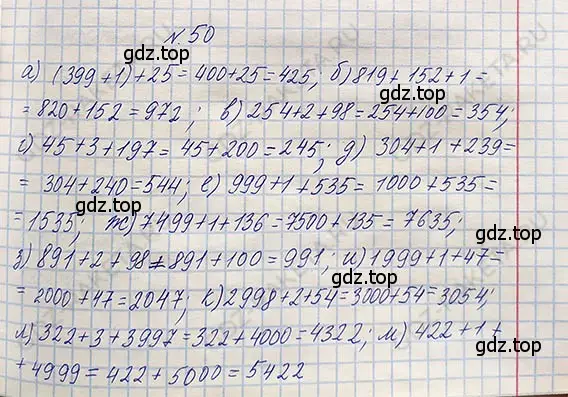 N. 50
а) (399+1)+25=400+25=425; б) 819+152+1=
=820+152=972; в) 254+2+98=254+100=354;
г) 45+3+197=45+200=245; д) 304+1+239=
=304+240=544; е) 999+1+535=1000+535=
=1535; ж) 7499+1+136=7500+135=7635;
з) 891+2+98=891+100=991; и) 1999+1+47=
=2000+47=2047; к) 2998+2+54=3000+54=3054;
л) 322+3+3997=322+4000=4322; м) 422+1+
+4999=422+5000=5422
gdz.top
gdz.top
gdz.top
gdz.top
gdz.top
gdz.top
gdz.top
gdz.top
gdz.top